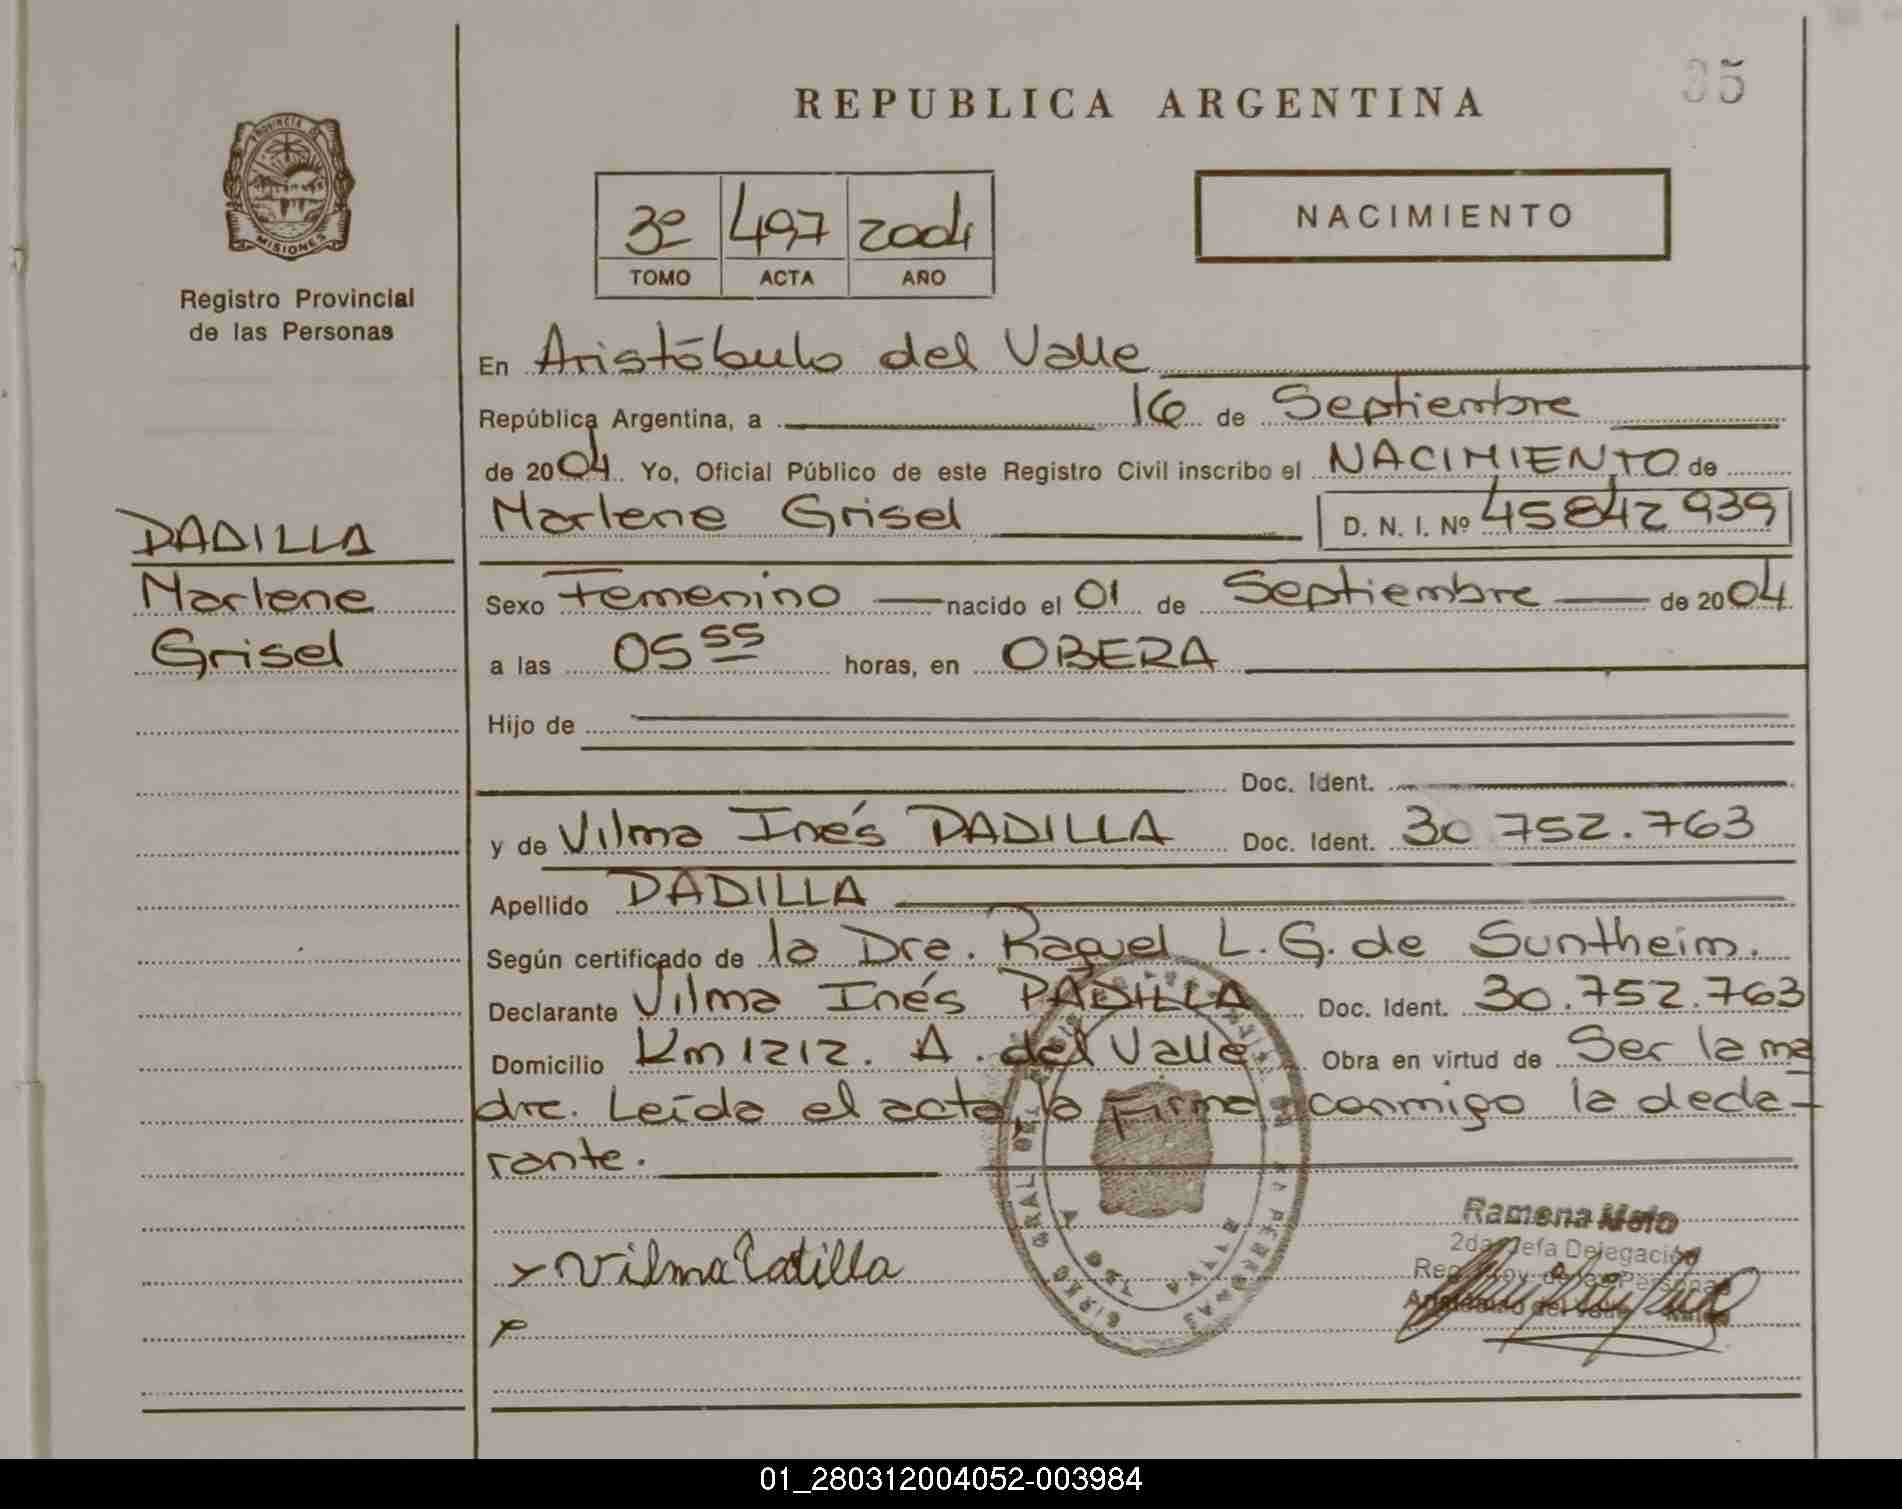 35
REPUBLICA ARGENTINA
PROVINCIA DE
MISIONES
3º 497 2004
TOMO ACTA AÑO
NACIMIENTO
Registro Provincial
de las Personas
En Aristóbulo del Valle
República Argentina, a 16 de Septiembre
de 2004 Yo, Oficial Público de este Registro Civil inscribo el NACIMIENTO de
Marlene Grisel D. N. I. Nº 45842939
PADILLA
Marlene
Grisel
Sexo Femenino nacido el 01 de Septiembre de 2004
a las 05 55 horas, en OBERA
Hijo de
Doc. Ident.
y de Vilma Inés PADILLA Doc. Ident. 30 752.763
Apellido PADILLA
Según certificado de la Dra. Raquel L. G. de Suntheim.
Declarante Vilma Inés PADILLA Doc. Ident. 30.752.763
Domicilio Km 1212. A. del Valle Obra en virtud de Ser la ma
dre. Leída el acta la firma conmigo la decla-
rante.
Vilma Padilla
Ramona Melo
2da Jefa Delegación
Reg. de las Personas
del Valle
01_280312004052-003984